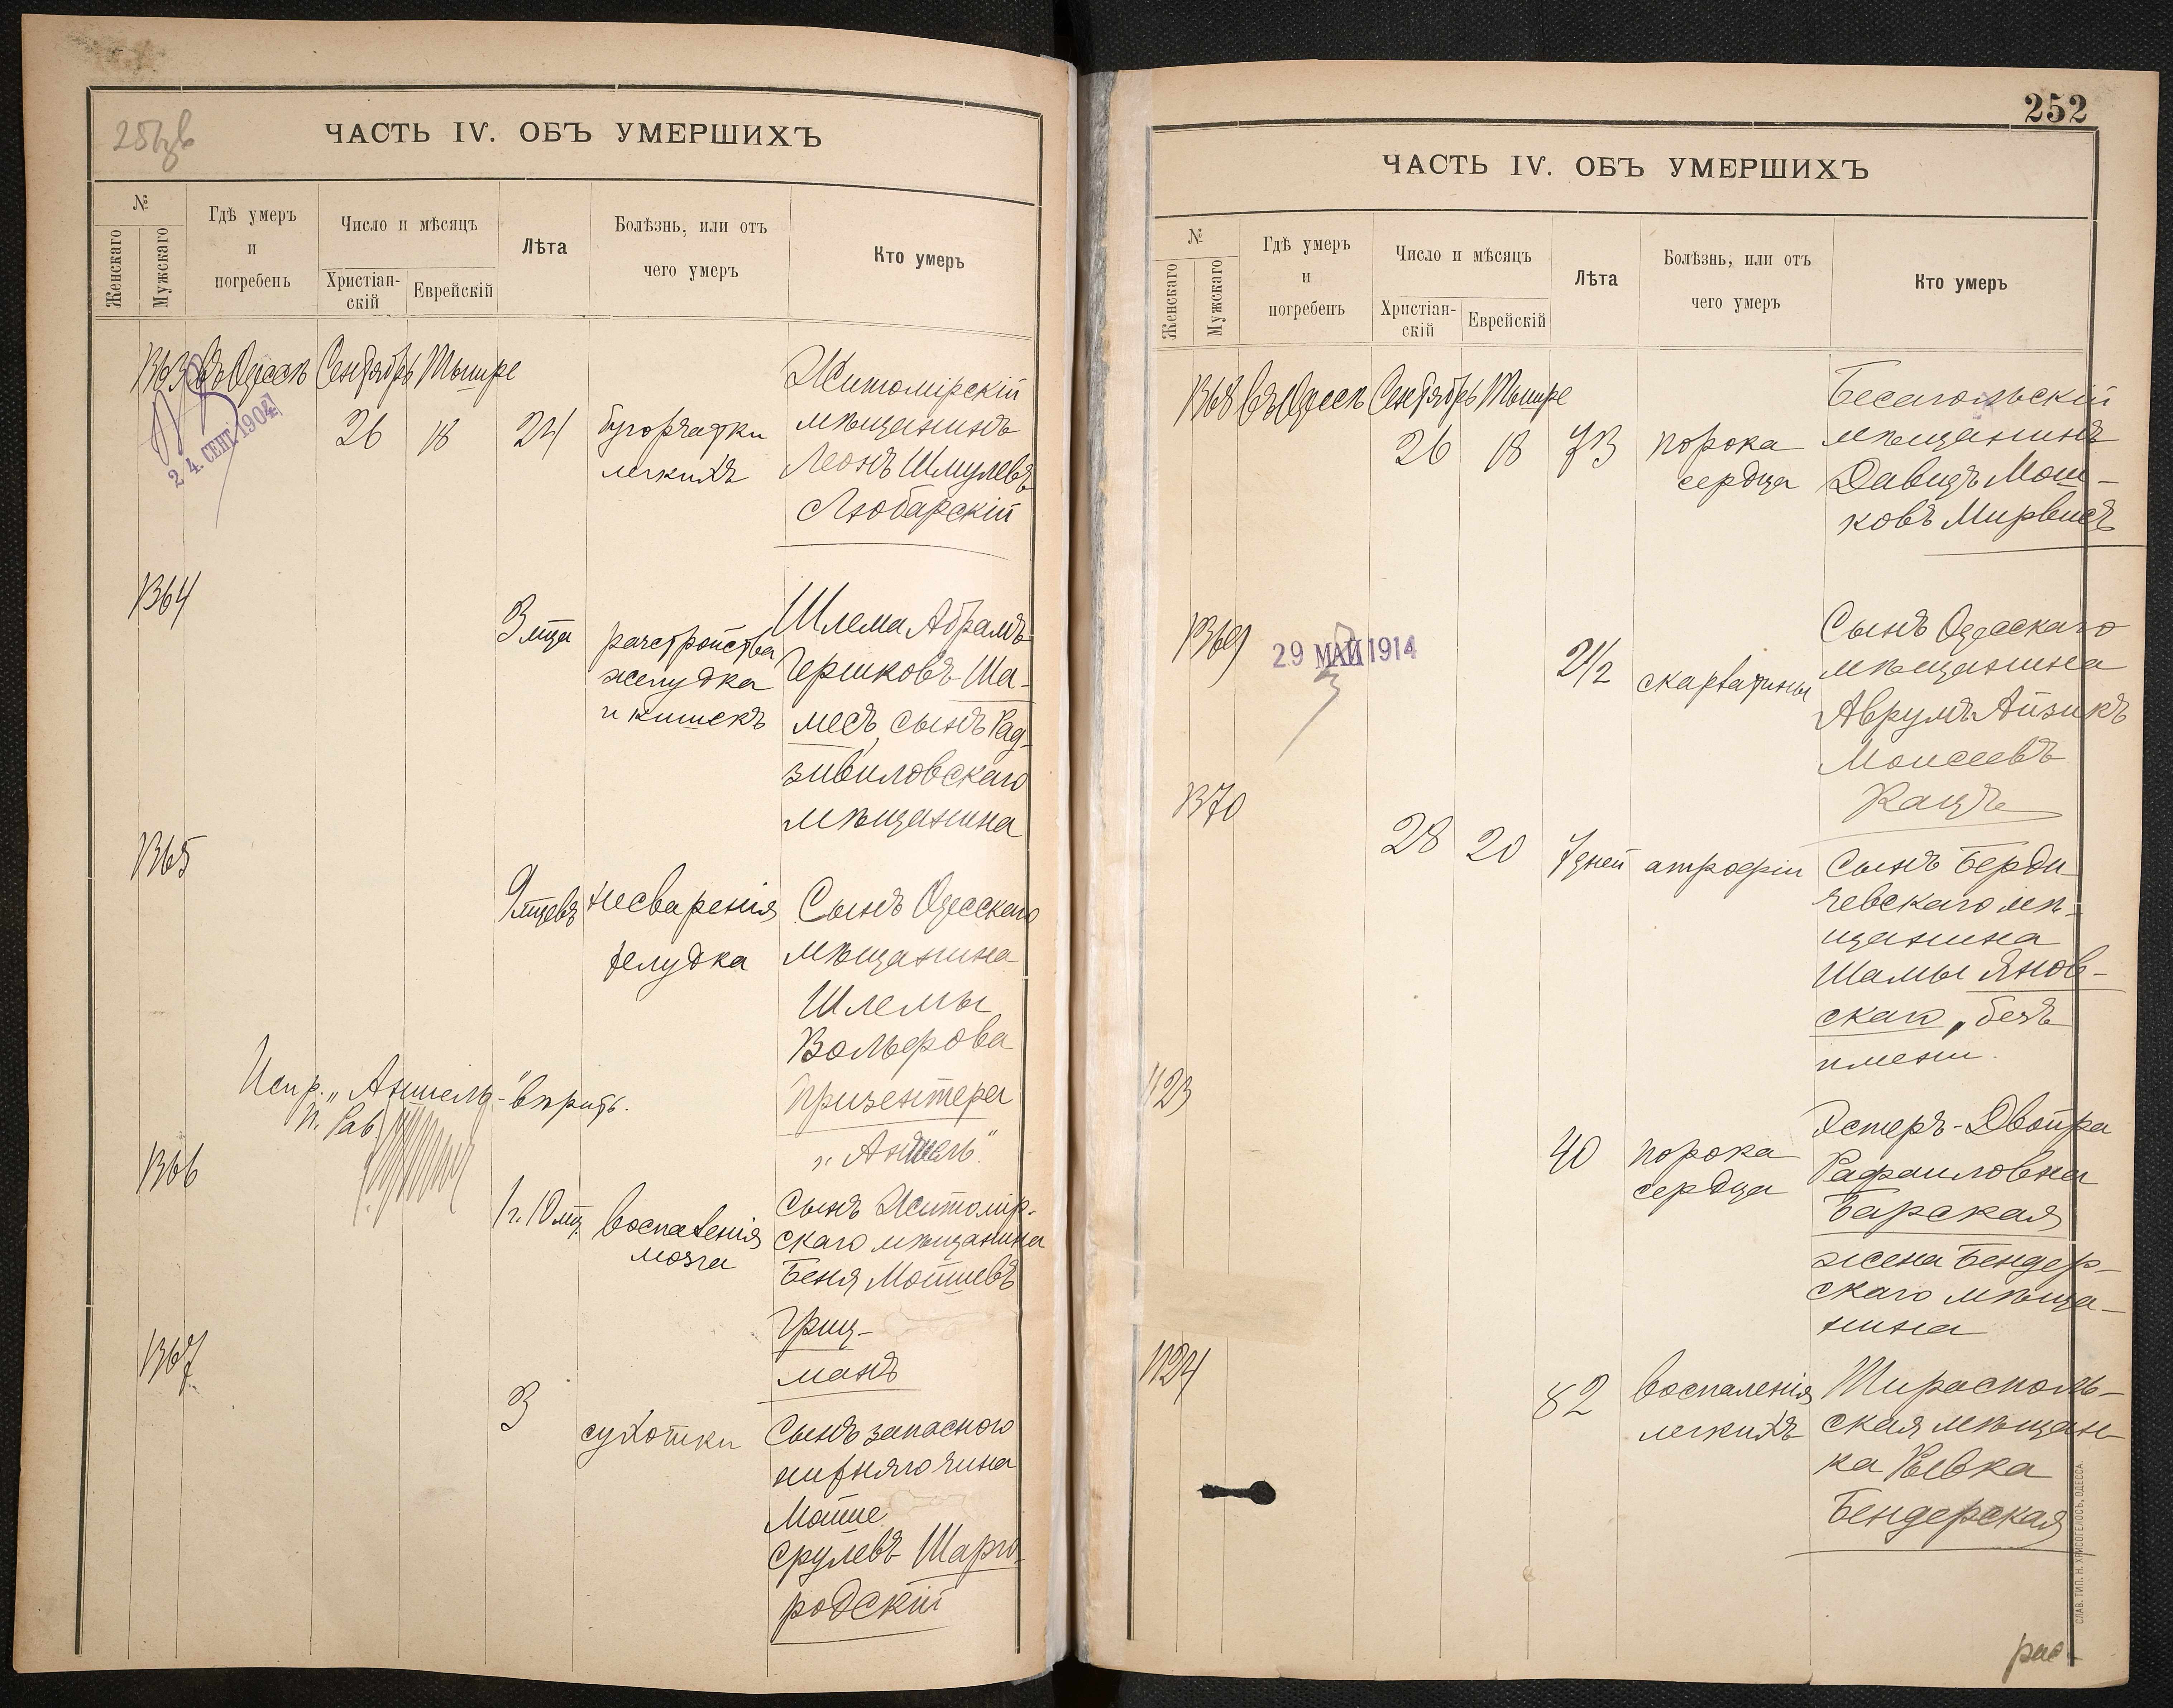 ЧАСТЬ IV. ОБЪ УМЕРШИХЪ
№
Женскаго
Мужскаго
Гдѣ умеръ
и
погребенъ
Число и мѣсяцъ
Христіан-
скій
Еврейскій
Лѣта
Болѣзнь, или отъ
чего умеръ
Кто умеръ
1363 въ Одессѣ Сентябрь Тышре
24. СЕНТ. 1904
26 18 24
бугорчатки
легкихъ
Житомірскій
мѣщанинъ
Леонъ Шмулевъ
Любарскій
1364
3 мца
разстройства
желудка
и кишекъ
Шлема Абрамъ
Гершковъ Ша-
месъ, сынъ Рад-
зивиловскаго
мѣщанина
1365
9 мцевъ
несваренія
желудка
Сынъ Одесскаго
мѣщанина
Шлемы
Вольфова
Призентера
„Аншель"
Испр. „Аншель-" вѣрить.
И. Рав.
1366
1 г. 10 мц.
воспаленія
мозга
Сынъ Житомір-
скаго мѣщанина
Беня Мошевъ
Гриц-
манъ
1367
3
сухотки
Сынъ запаснаго
нижняго чина
Мойше
Срулевъ Шарго-
родскій
252
ЧАСТЬ IV. ОБЪ УМЕРШИХЪ
№
Женскаго
Мужскаго
Гдѣ умеръ
и
погребенъ
Число и мѣсяцъ
Христіан-
скій
Еврейскій
Лѣта
Болѣзнь, или отъ
чего умеръ
Кто умеръ
1368 въ Одессѣ Сентябрь Тышре
26 18 73
порока
сердца
мѣщанинъ
Давидъ Мош-
ковъ Мирвисъ
1369
29 МАЙ 1914
2½
скарлатины
Сынъ Одесскаго
мѣщанина
Аврумъ Айзикъ
Моисеевъ
Кацъ
1370
28 20 7 дней
атрофіи
Сынъ Берди
чевскаго мѣ-
щанина
Шамы Янов-
скаго, „безъ
имени.
1123
40
порока
сердца
Эстеръ-Двойра
Рафаиловна
Барская
жена Бендер-
скаго мѣща-
нина
1124
82
воспаленія
легкихъ
Тирасполь-
ская мѣщан-
ка Ривка
Бендерская
СЛАВ. ТИП. Н. ХРИСОГЕЛОСЪ, ОДЕССА.